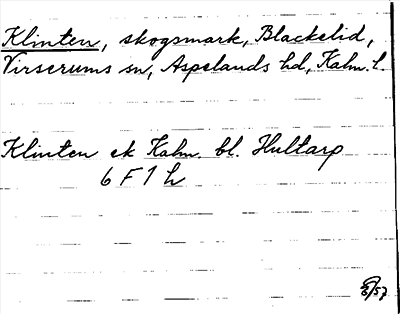 Klinten, skogsmark, Blackelid,
Virserums sn, Aspelands hd, Kalm. l.
Klinten ek Kalm. bl. Hultarp
6 F 1 h